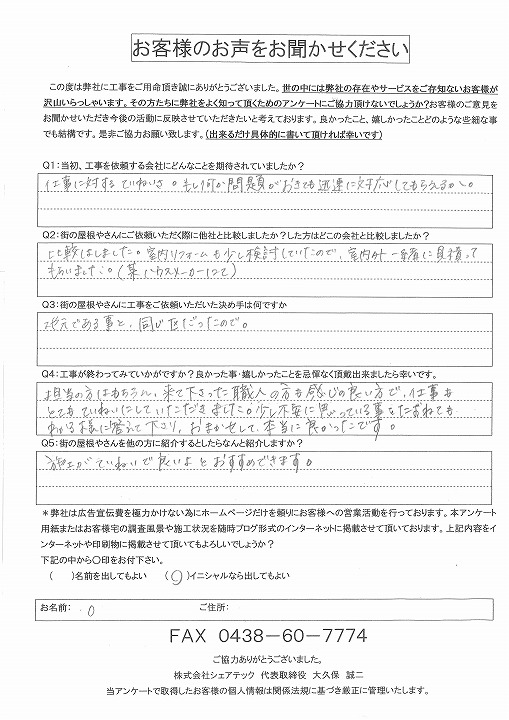 お客様のお声をお聞かせください
この度は弊社に工事をご用命頂き誠にありがとうございました。世の中には弊社の存在やサービスをご存知ないお客様が
沢山いらっしゃいます。その方たちに弊社をよく知って頂くためのアンケートにご協力頂けないでしょうか?お客様のご意見を
お聞かせいただき今後の活動に反映させていただきたいと考えております。良かったこと、嬉しかったことどのような些細な事
でも結構です。是非ご協力お願い致します。(出来るだけ具体的に書いて頂ければ幸いです)
Q1:当初、工事を依頼する会社にどんなことを期待されていましたか?
仕事に対するていねいさ。もし何か問題がおきても迅速に対応してもらえるか。
Q2:街の屋根やさんにご依頼いただく際に他社と比較しましたか?した方はどこの会社と比較しましたか?
比較はしました。室内リフォームも少し検討していたので、室内外一緒に見積って
もらいました。(某ハウスメーカーにて)
Q3:街の屋根やさんに工事をご依頼いただいた決め手は何ですか
地元である事と、同じ区だったので。
Q4:工事が終わってみていかがですか?良かった事・嬉しかったことを忌憚なく頂戴出来ましたら幸いです。
担当の方はもちろん、来て下さった職人の方も感じの良い方で、仕事も
とてもていねいにしていただきました。少し不安に思っている事をたずねても
わかる様に答えて下さり、おまかせして、本当に良かったです。
Q5:街の屋根やさんを他の方に紹介するとしたらなんと紹介しますか?
施工がていねいで良いよとおすすめできます。
*弊社は広告宣伝費を極力かけない為にホームページだけを頼りにお客様への営業活動を行っております。本アンケート
用紙またはお客様宅の調査風景や施工状況を随時ブログ形式のインターネットに掲載させて頂いております。上記内容をイ
ンターネットや印刷物に掲載させて頂いてもよろしいでしょうか?
下記の中から○印をお付下さい。
( )名前を出してもよい (○)イニシャルなら出してもよい
お名前: O ご住所:
FAX 0438-60-7774
ご協力ありがとうございました。
株式会社シェアテック 代表取締役 大久保 誠二
当アンケートで取得したお客様の個人情報は関係法規に基づき厳正に管理いたします。